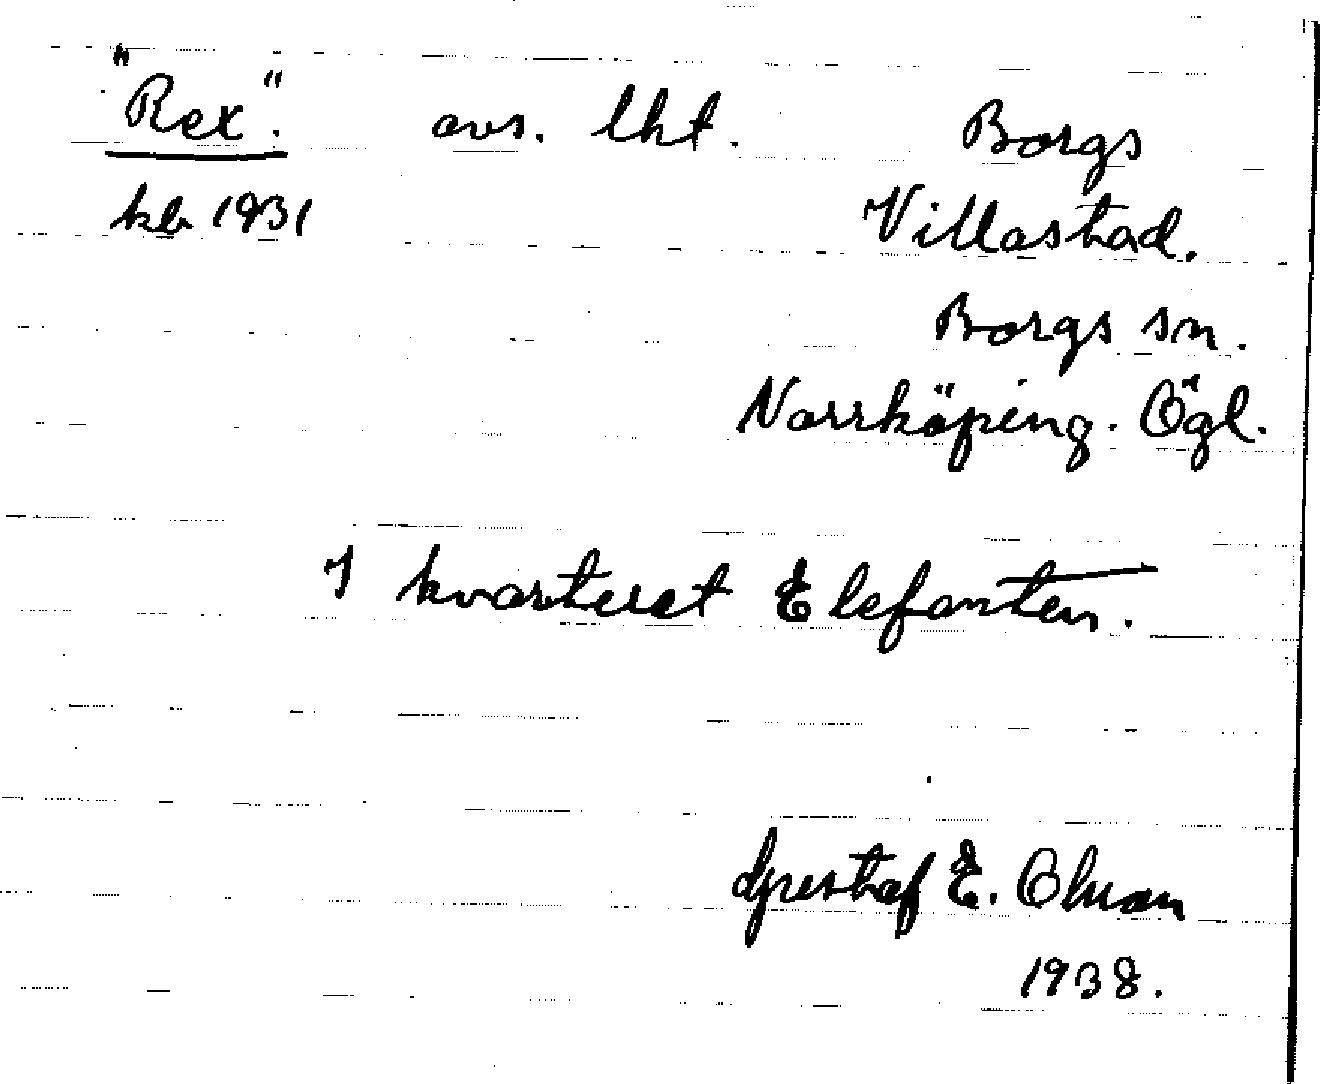 "Rex". avs. lht. Borgs
kb 1931 Villastad.
Borgs sn.
Norrköping. Ögl.
I kvarteret Elefanten.
Gustaf E. Olsson
1938.